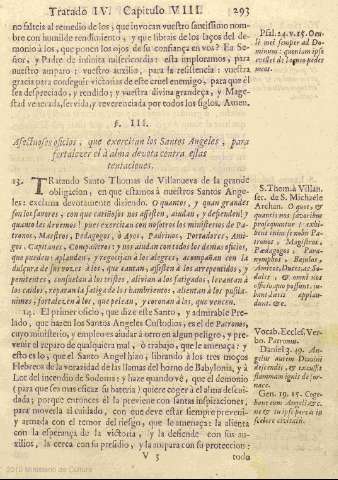 Tratado IV. Capitulo VIII. 293
no falteis al remedio de los; que invocan vuestro santissimo nom-
bre con humilde rendimiento; y que librais de los laços del de-
monio à los, que ponen los ojos de su confiança en vos? Ea Se-
ñor, y Padre de infinita misericordia: esta imploramos, para
nuestro amparo: vuestro auxilio, para la resistencia: vuestra
gracia para conseguir victorias de este cruel enemigo, para que el
sea despreciado, y rendido; y vuestra divina grandeça, y Mage-
stad venerada, servida, y reverenciada por todos los siglos. Amen.
§. III.
Afectuosos oficios, que exercitan los Santos Angeles; para
fortalecer el à alma devota contra estas
tentaciones.
13. TRatando Santo Thomas de Villanueva de la grande
obligacion, en que estamos à nuestros Santos Ange-
les: exclama devotamente diziendo. O quantos, y quan grandes
son los favores, con que cariñosos nos assisten, aiudan, y defienden! y
quanto les devemos! pues exercitan con nosotros los ministerios de Pa-
tronos, Maestros, Pedagogos, ò Ayos, Padrinos, Portadores, Ami-
gos, Capitanes, Compañeros: y nos aiudan con todos los demas oficios,
que pueden: aplauden, y regocijan à los alegres, acompañan con la
dulçura de sus vozes à los, que cantan, assisten à los arrepentidos, y
penitentes, consuelan à los tristes, alivian à los fatigados, levantan à
los caidos, reparan la fatiga de los hambrientos, alientan à los pusilani-
nimos, fortalecen à los, que pelean, y coronan à los, que vencen.
14. El primer oficio, que dize este Santo, y admirable Prela-
do, que hazen los Santos Angeles Custodios, es el de Patronos,
cuyo ministerio, y empleo es aiudar à otro en algun peligro, y pre-
venir el reparo de qualquiera mal, ò trabajo, que le amenaça: y
esto es lo, que el Santo Angel hizo, librando à los tres moços
Hebreos de la vorazidad de las llamas del horno de Babylonia, y à
Lot del incendio de Sodoma: y haze quando vè, que el demonio
(para que sea mas oficaz su bateria) quiere coger à el alma descui-
dada; porque entonces èl la previene con santas inspiraciones,
para moverla al cuidado, con que deve estar siempre preveni-
da, y armada con el temor del riesgo, que le amenaça: la alienta
con la esperança de la victoria, y la defiende con sus au-
xilios, la cerca con su presidio, y la ampara con su proteccion:
V 3 todo
Psal. 24. v. 15. Ocu-
li mei semper ad Do-
minum: quoniam ipse
evellet de laqueo pedes
meos.
S. Thomà Villan.
ser. de S. Michaele
Archan. O quos, &
quantis nos favoribus
prosequuntur! exhi-
bent enim semodò Pa-
tronos, Magistros,
Pedagogos, Para-
nymphos, Bajulos,
Amicos, Duces, ac So-
dales, &
Vocab. Eccles. Ver-
bo. Patronus.
Daniel 3. 49. An-
gelus autem Domini
descendit, & excussit
flammam ignis de for-
nace.
Gen. 19. 15. Coge-
bant eum Angeli, &c.
ne tu pariter pereas in
scelere civitatis.
2010 Ministerio de Cultura